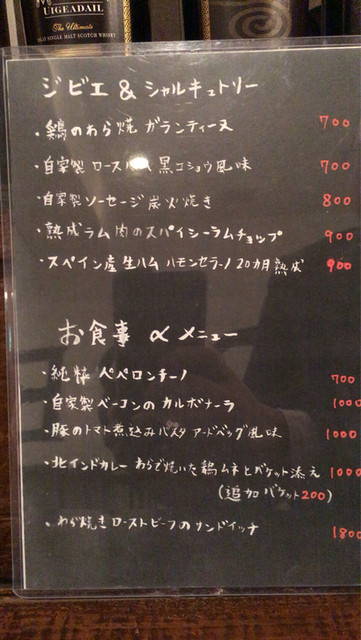 UIGEADAIL
The Ultimate
SINGLE MALT SCOTCH WHISKY
ジビエ & シャルキュトリー
・鶏のわら焼 ガランティーヌ 700
・自家製 ロースハム 黒コショウ風味 700
・自家製 ソーセージ 炭火焼き 800
・熟成ラム肉のスパイシーラムチョップ 900
・スペイン産生ハム ハモンセラーノ 20カ月熟成 900
お食事 メニュー
・純粋 ペペロンチーノ 700
・自家製ベーコンの カルボナーラ 1000
・豚のトマト煮込みパスタ アードベッグ風味 1000
・北インドカレー わらで焼いた鶏ムネとバケット添え 1000
(追加バケット200)
・わら焼きローストビーフのサンドイッチ 1800